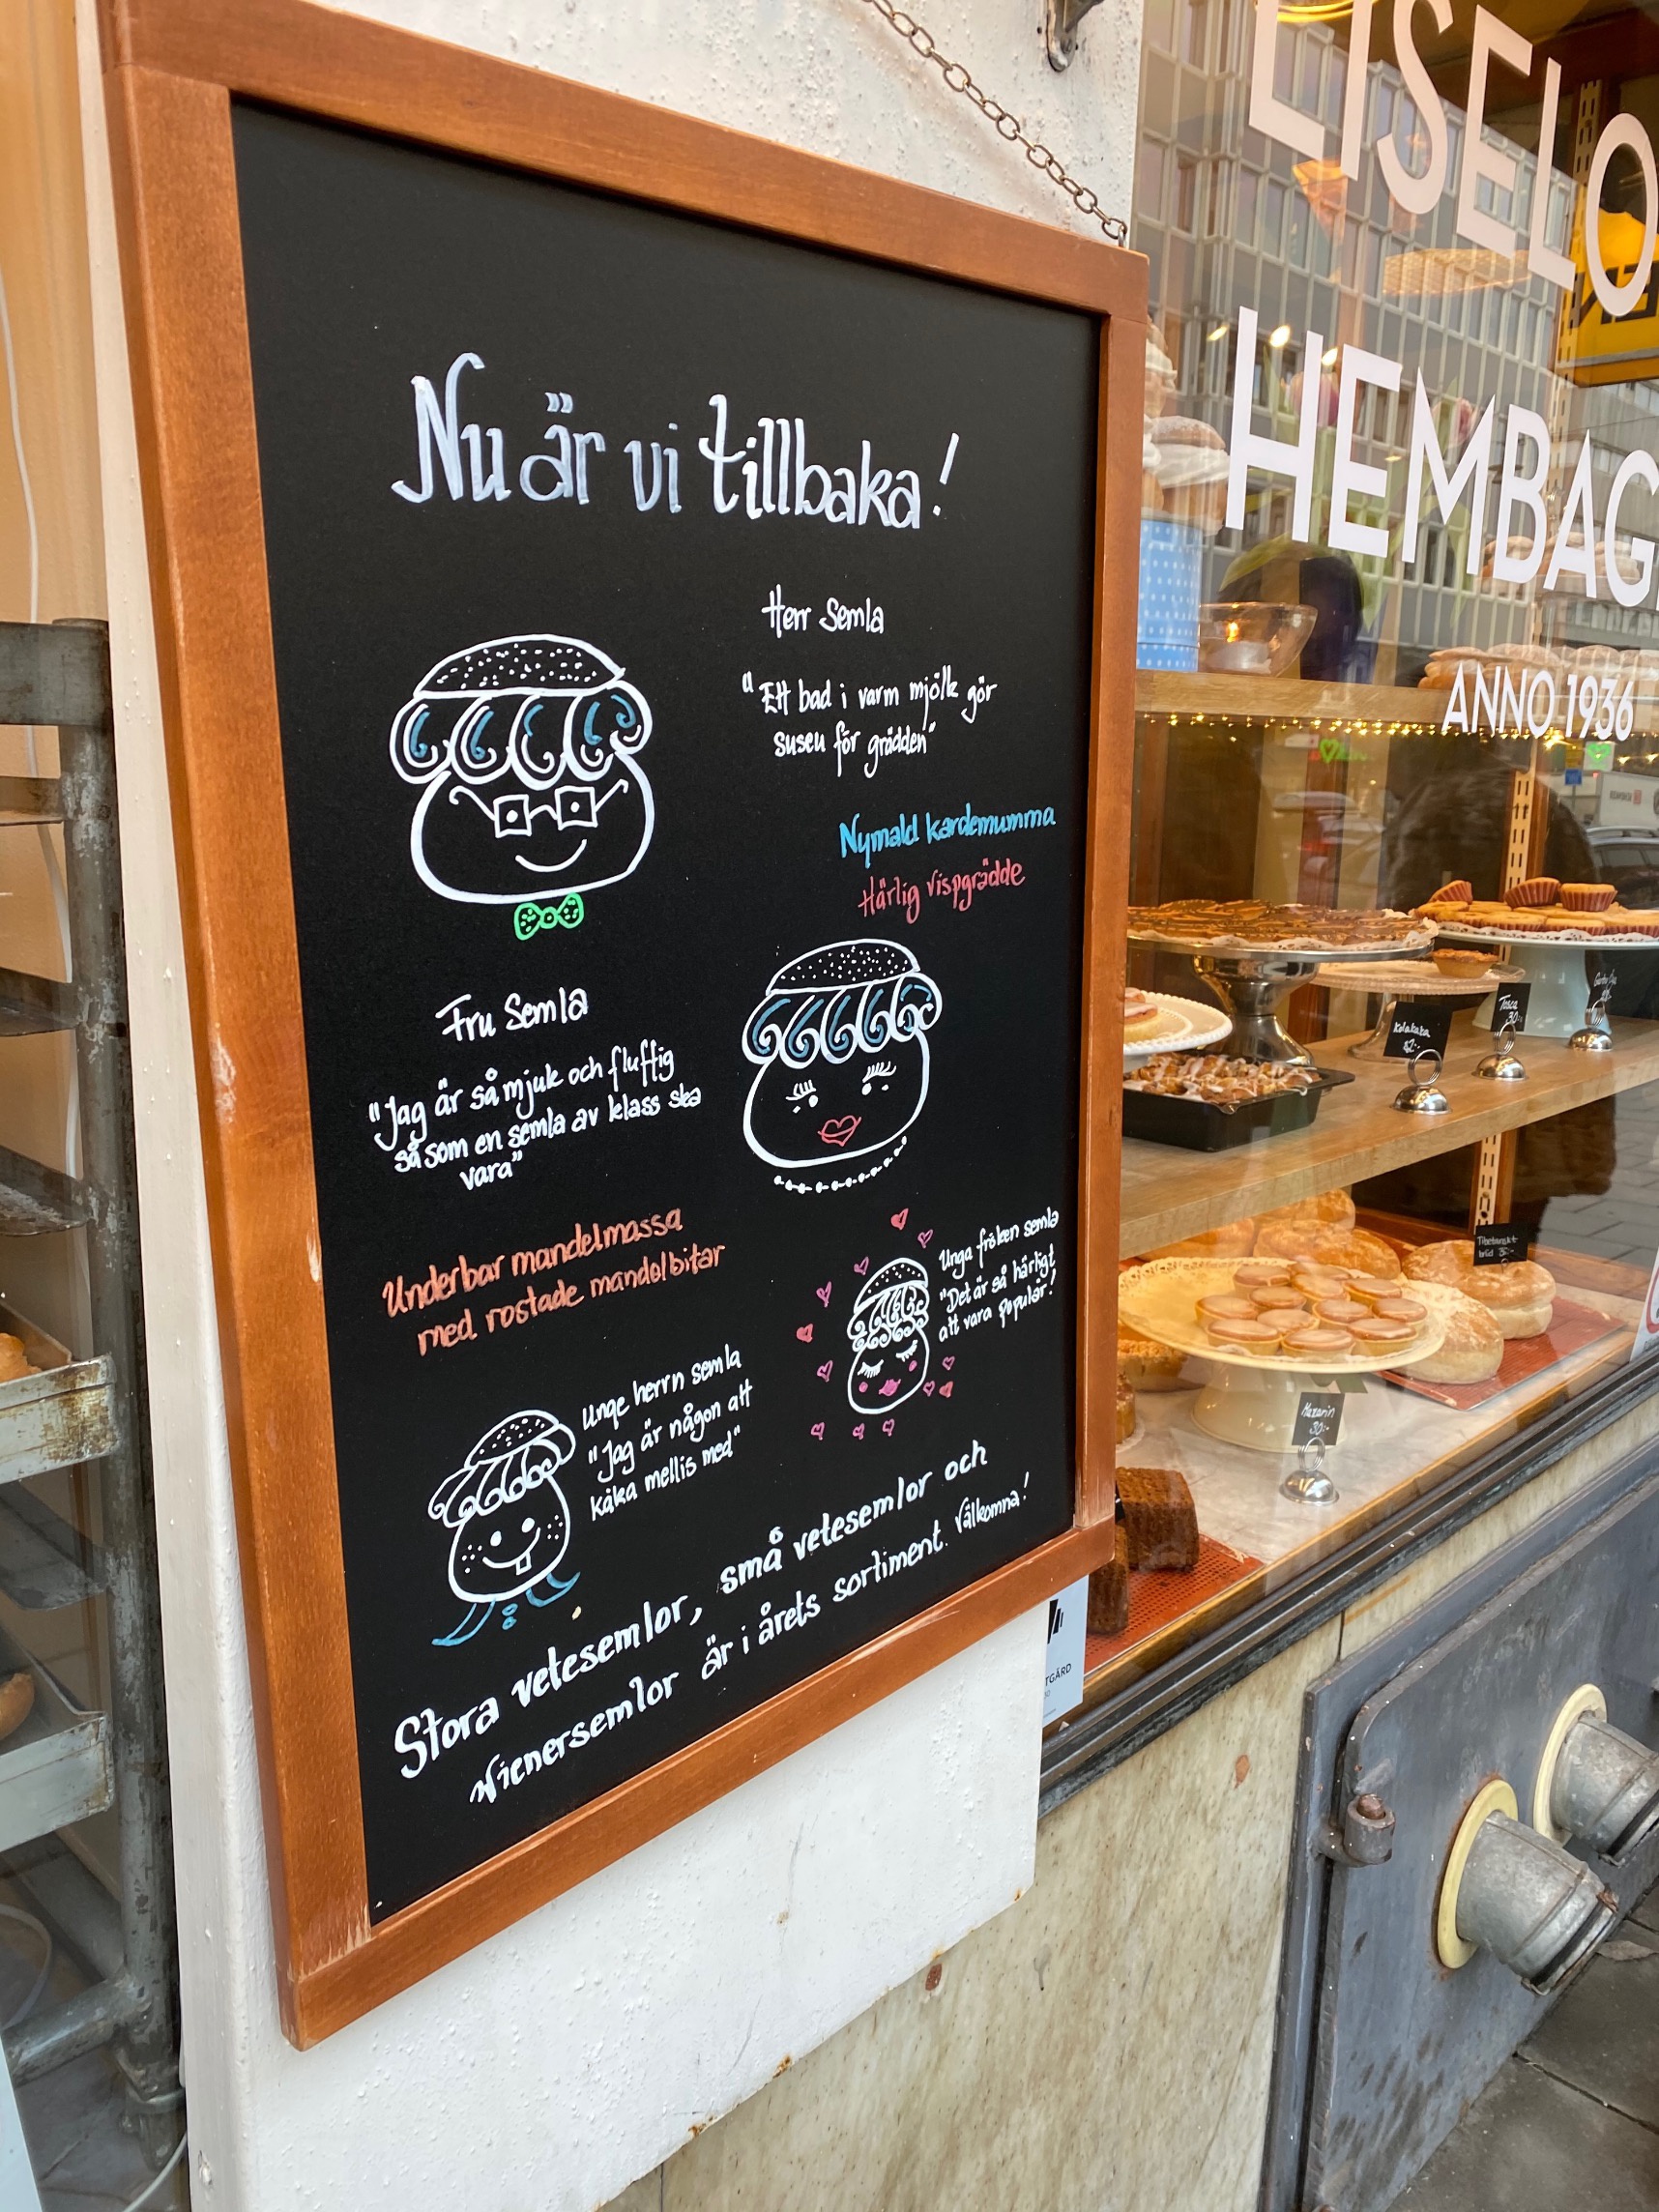 Nu är vi tillbaka!
Herr Semla
"Ett bad i varm mjölk gör
susen för grädden"
Nymald kardemumma
Härlig vispgrädde
Fru Semla
"Jag är så mjuk och fluffig
så som en semla av klass ska
vara"
Underbar mandelmassa
med rostade mandelbitar
Unga fröken semla
"Det är så härligt
att vara populär!
Unge herrn semla
"Jag är någon att
käka mellis med"
Stora vetesemlor, små vetesemlor och
Wienersemlor är i årets sortiment. Välkomna!
LISELO
HEMBAG
ANNO 1936
Kolakaka
Tosca
30:-
Mazarin
30:-
Tibetanskt
bröd
TGÅRD